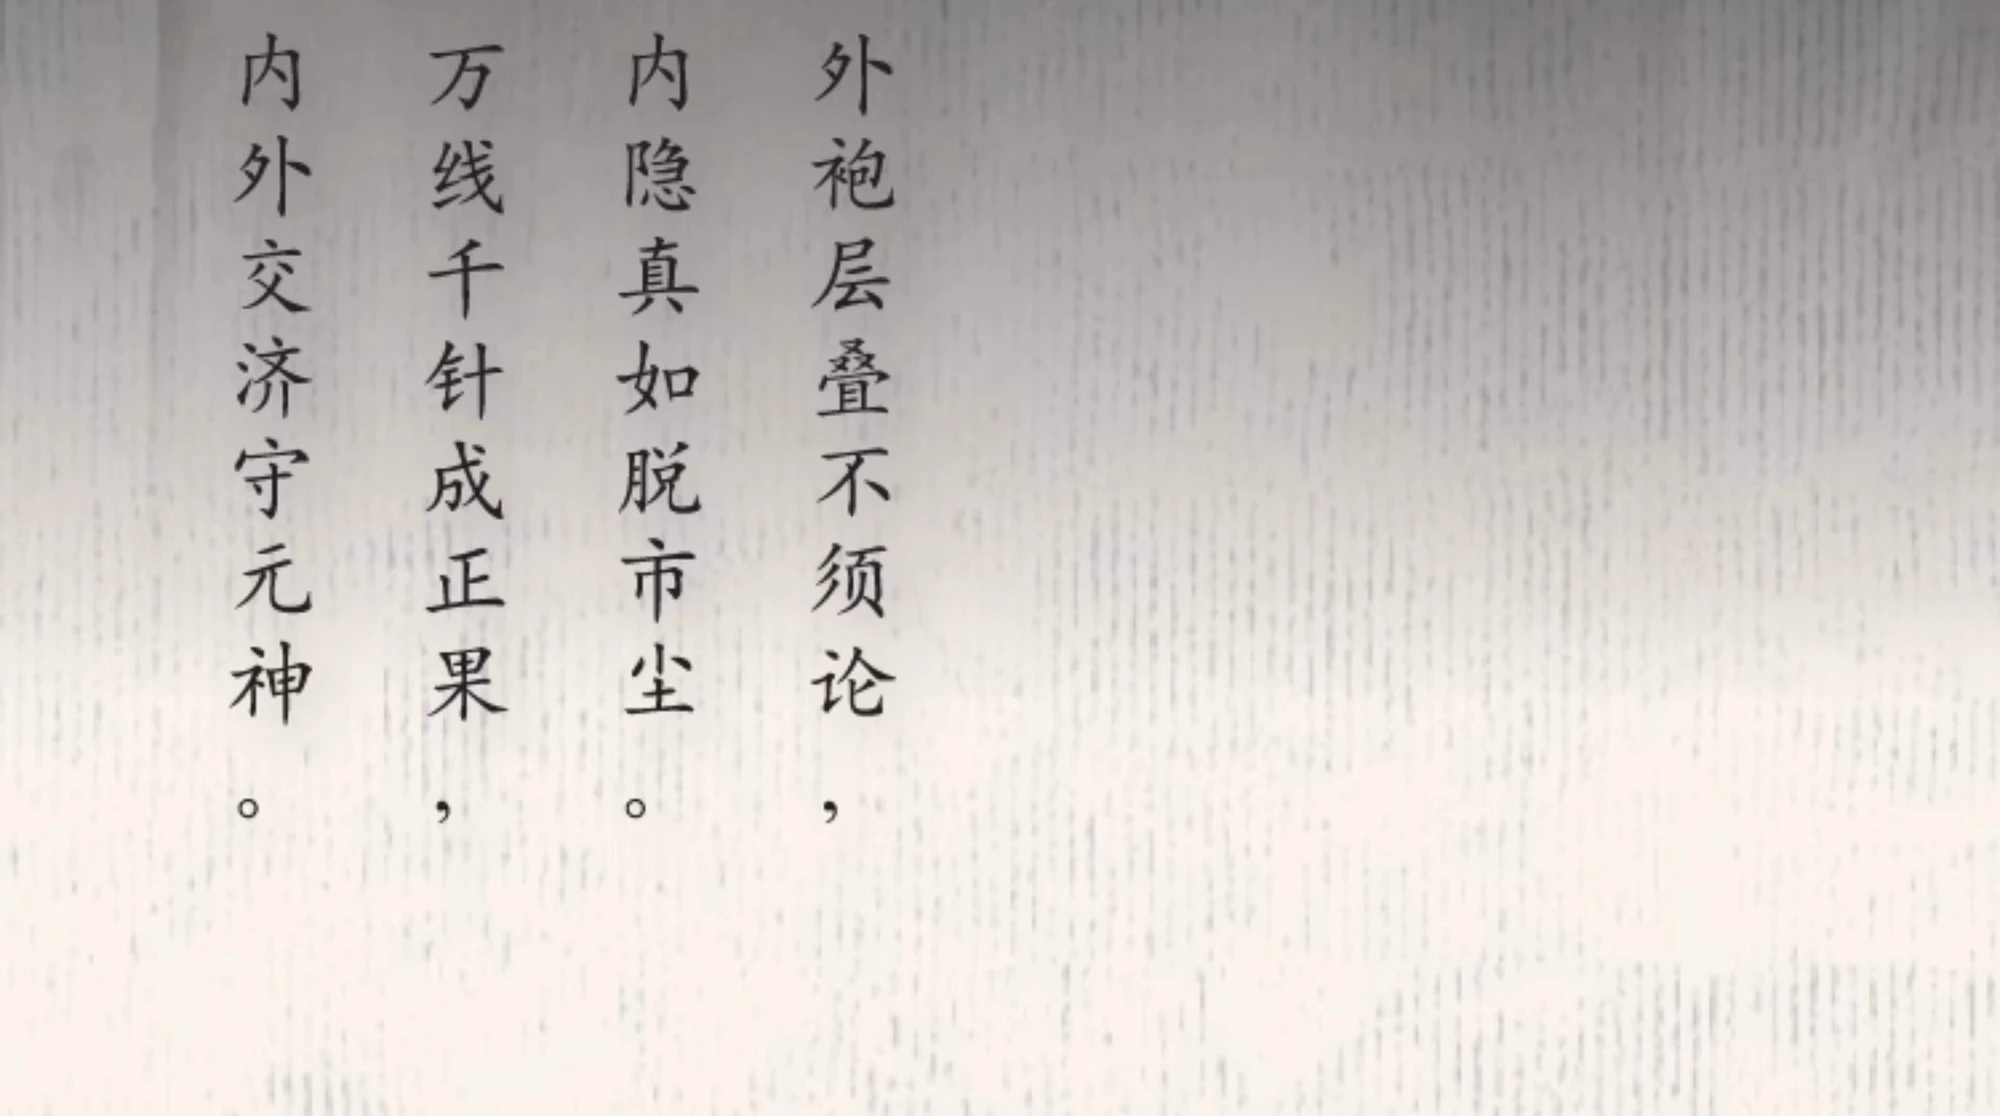 外袍层叠不须论，
内隐真如脱市尘。
万线千针成正果，
内外交济守元神。